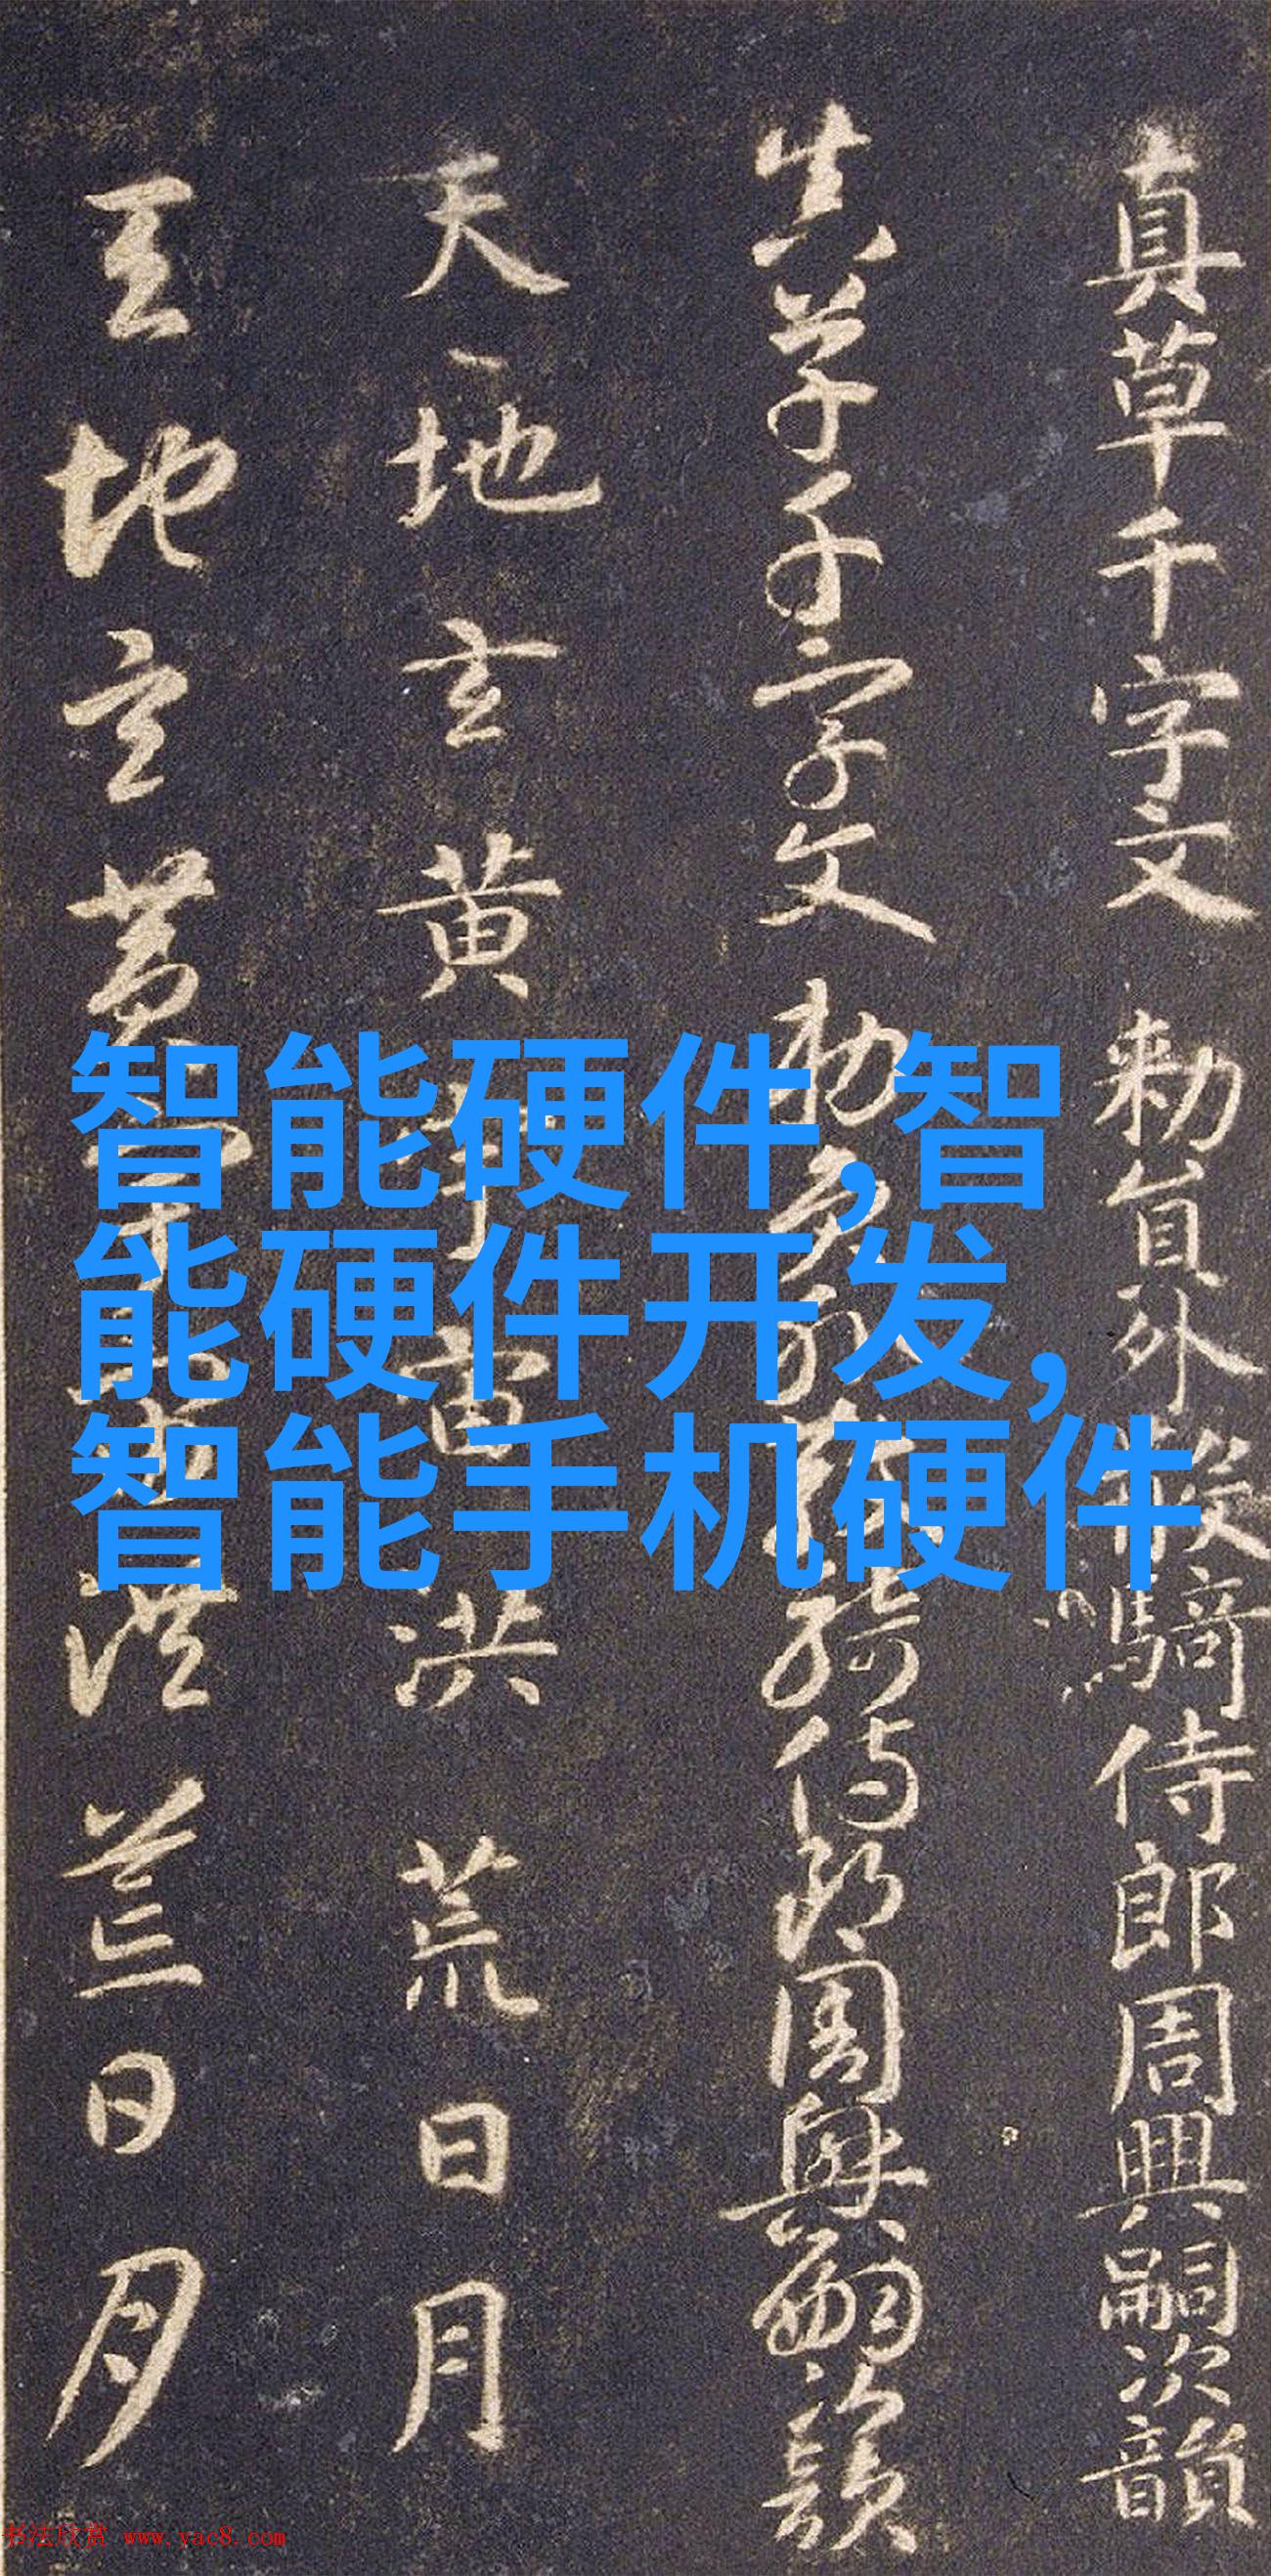 真草千字文 敕員外散騎侍郎周興嗣次韻
真草千字文 敕員外散騎侍郎周興嗣次韻
天地玄黄宇宙洪荒日月
天地玄黄宇宙洪荒日月
智能硬件,智
能硬件开发,
智能手机硬件
书法欣赏 www.yac8.com